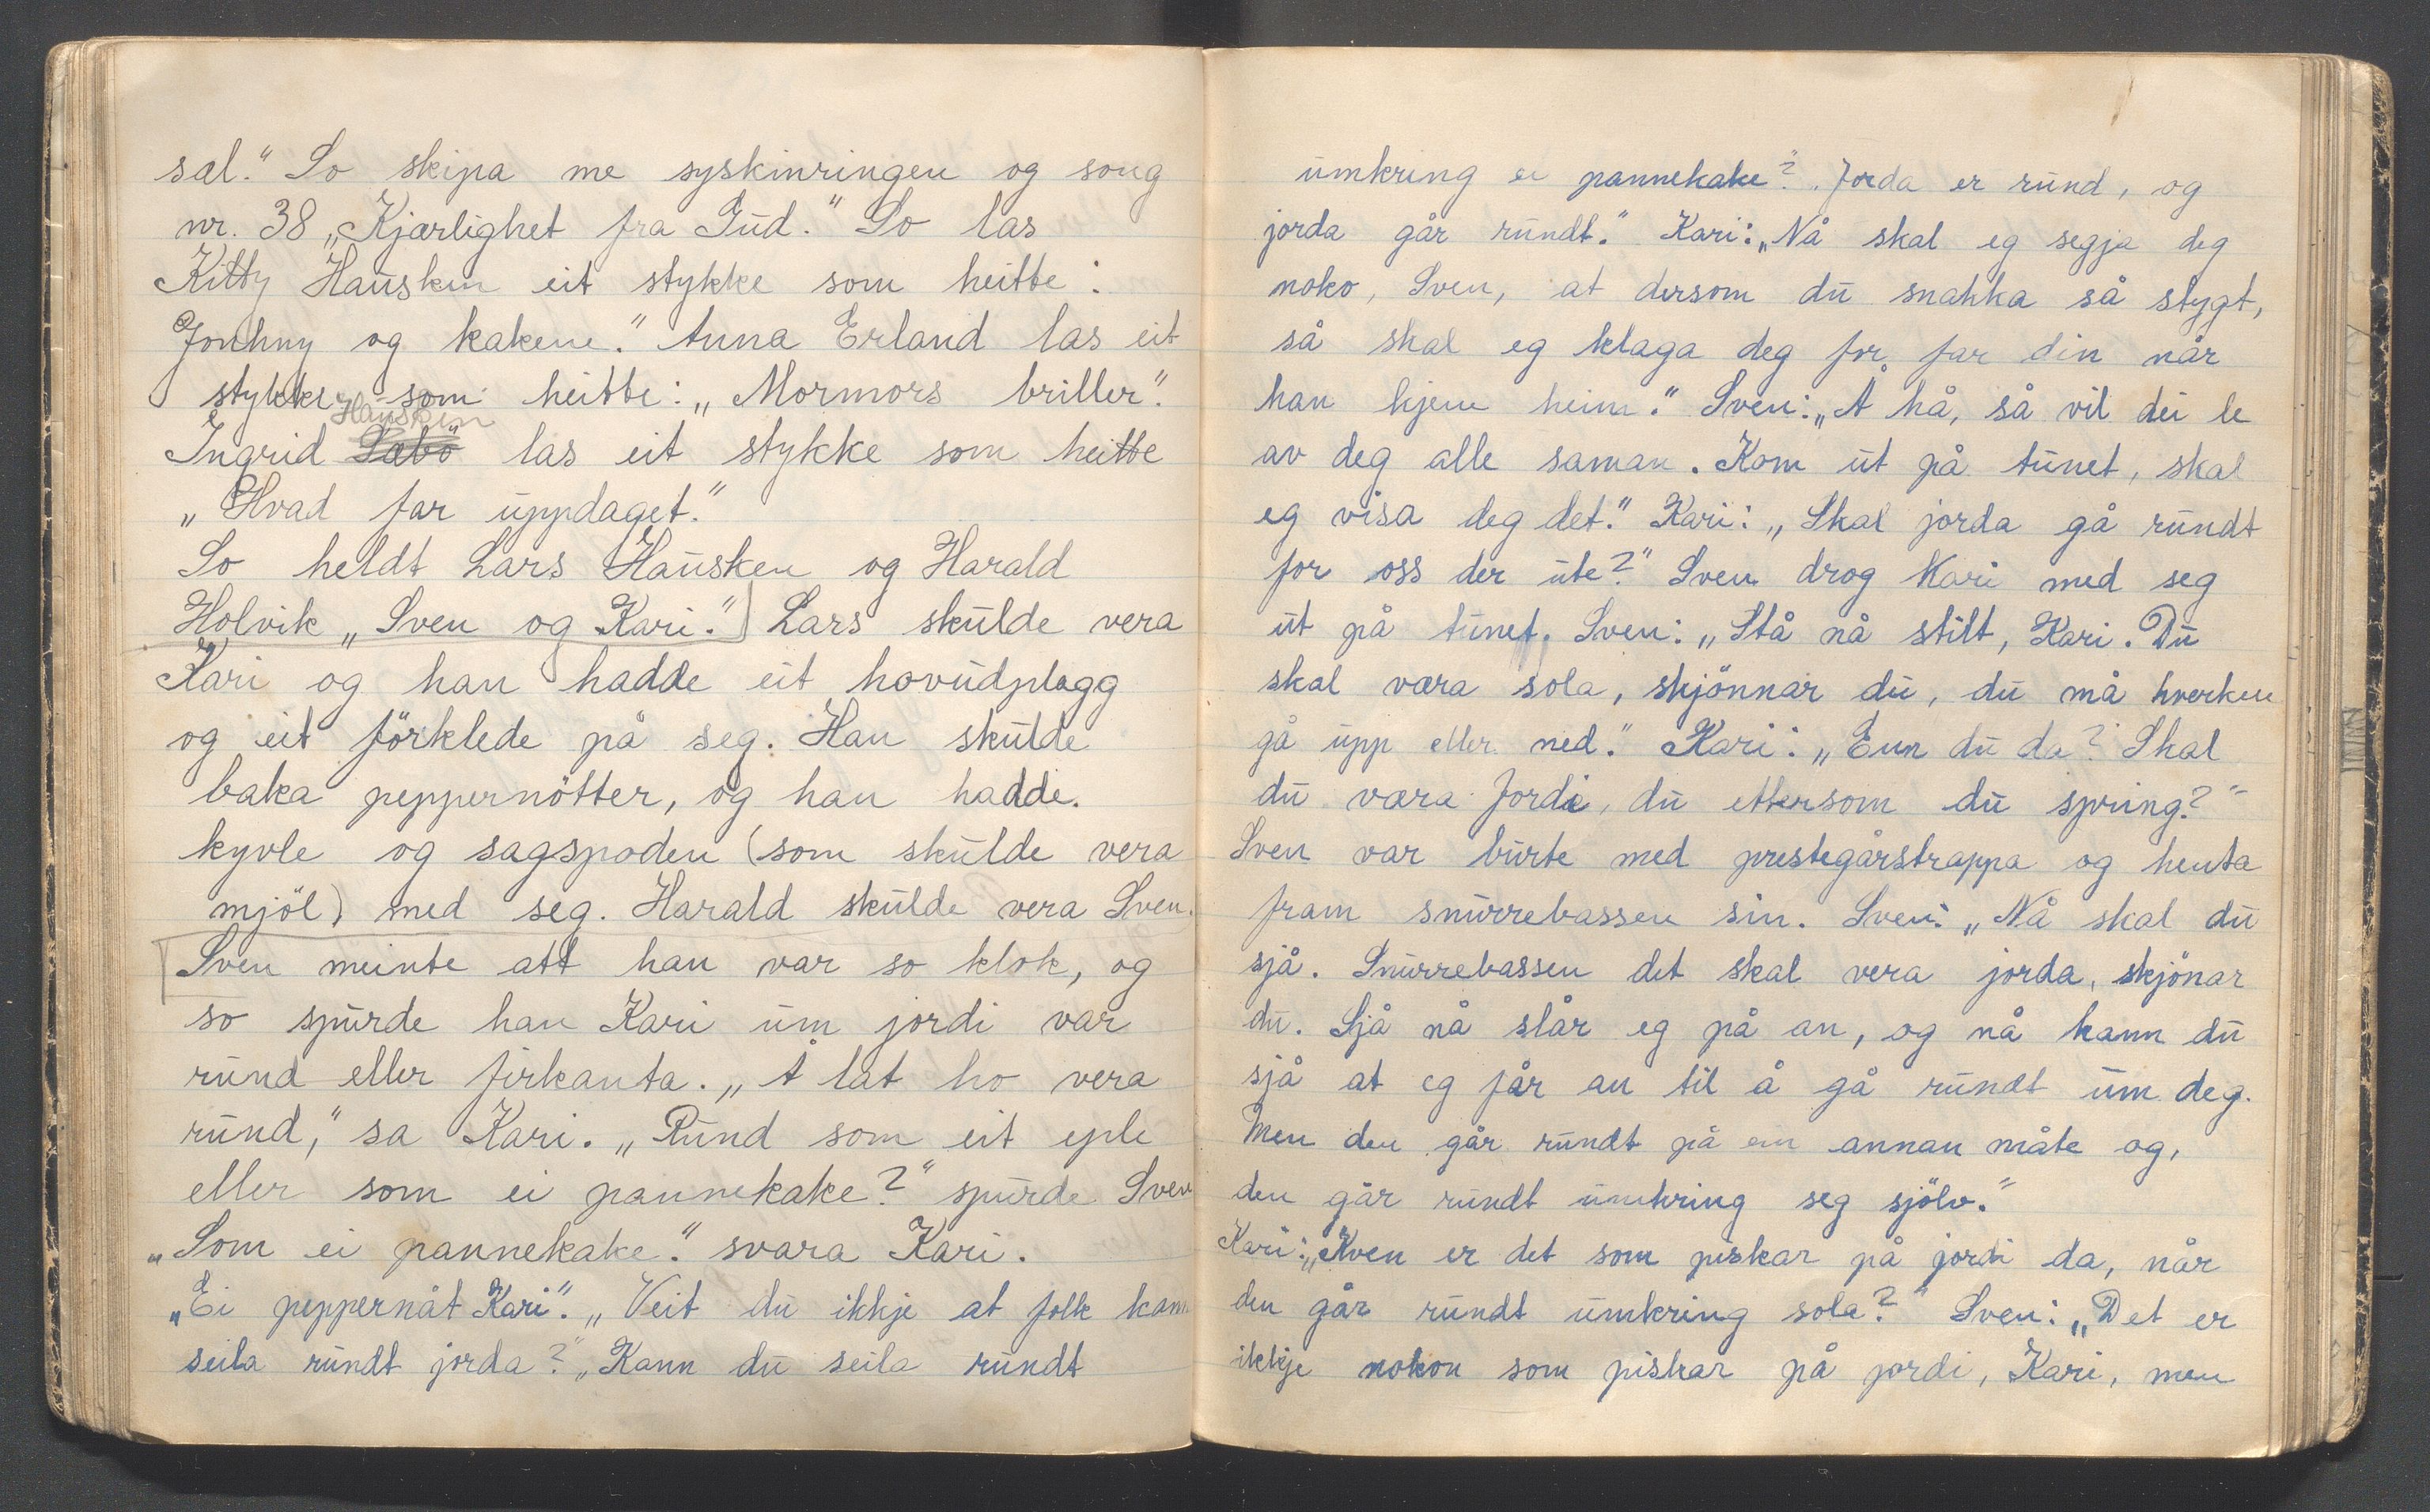 sæl." So skipa me syskinringen og song
nr. 38 „Kjærlighet fra Gud." So las
Kitty Hausken eit stykke som heitte:
„Jonhny og kakene." Anna Erland las eit
stykke som heitte: „Mormors briller".
Hausken
Ingrid Sæbö las eit stykke som heitte
„Hvad far uppdaget."
So heldt Lars Hausken og Harald
Holvik „Sven og Kari." Lars skulde vera
Kari og han hadde eit hovudplagg
og eit förklede på seg. Han skulde
baka peppernötter, og han hadde.
kyvle og sagspoden (som skulde vera
mjöl) med seg. Harald skulde vera Sven.
Sven meinte att han var so klok, og
so spurde han Kari um jordi var
rund eller firkanta. „Å lat ho vera
rund," sa Kari. „Rund som eit eple
eller som ei pannekake?" spurde Sven
„Som ei pannekake." svara Kari.
„Ei peppernåt Kari". „Veit du ikkje at folk kann
seila rundt jorda?" „Kann du seila rundt
umkring ei pannekake? Jorda er rund, og
jorda går rundt." Kari: „Nå skal eg segja deg
noko, Sven, at dersom du snakka så stygt,
så skal eg klaga deg for far din når
han kjem heim." Sven: „Å hå, så vil dei le
av deg alle saman. Kom ut på tunet, skal
eg visa deg det." Kari: „Skal jorda gå rundt
for oss der ute?" Sven drog Kari med seg
ut på tunet. Sven: „Stå nå stilt, Kari. Du
skal væra sola, skjönnar du, du må hverken
gå upp eller ned." Kari: „Enn du da? Skal
du væra Jordi, du ettersom du spring?"
Sven var burte med prestegårstrappa og henta
fram snurrebassen sin. Sven: „Nå skal du
sjå. Snurrebassen det skal vera jorda, skjönar
du. Sjå nå slår eg på an, og nå kann du
sjå at eg får an til å gå rundt um deg.
Men den går rundt på ein annan måte og,
den går rundt umkring seg sjölv."
Kari: „Kven er det som piskar på jordi da, når
den går rundt umkring sola?" Sven: „Det er
ikkje nokon som piskar på jordi, Kari, men